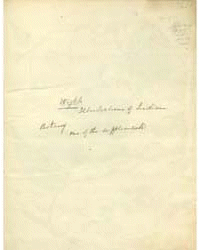 Wight
Illustrations of Indian
Botany
one of the supplements